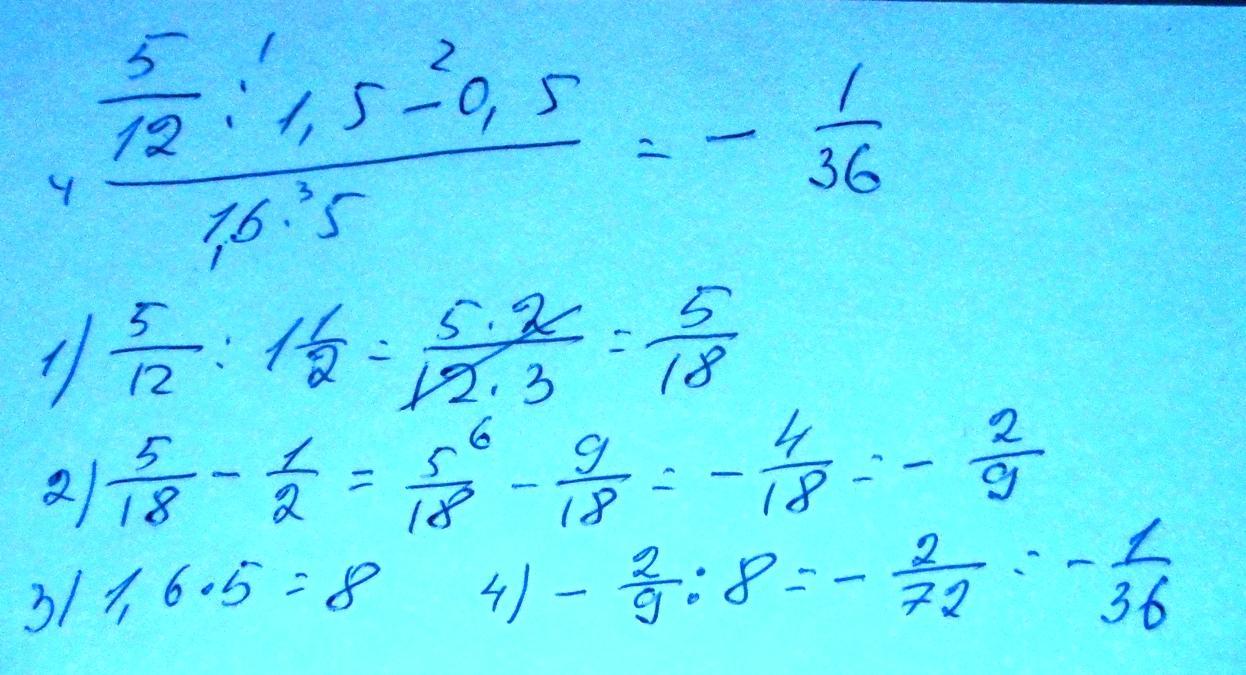 5/12 :¹ 1,5 -² 0,5
4 ———— = - 1/36
1,6 ·³ 5
1) 5/12 : 1 1/2 = 5·2/12·3 = 5/18
2) 5/18 - 1/2 = 5/18 - 9/18 = - 4/18 = - 2/9
6
3) 1,6·5 = 8 4) - 2/9 : 8 = - 2/72 = - 1/36